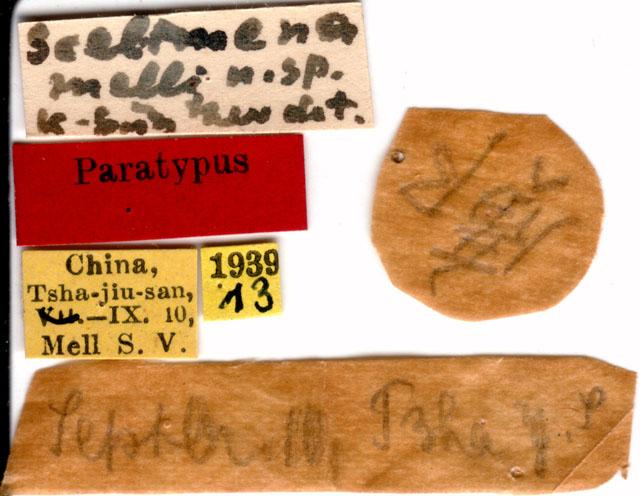 Scelimena
melli n. sp.
det.
Paratypus
China,
Tsha-jiu-san,
–IX. 10,
Mell S. V.
1939
13
Septbr. 10, Tsha y. s